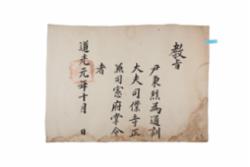 教旨
尹東烈爲通訓
大夫司僕寺正
兼司憲府掌令
者
道光元年十月　日